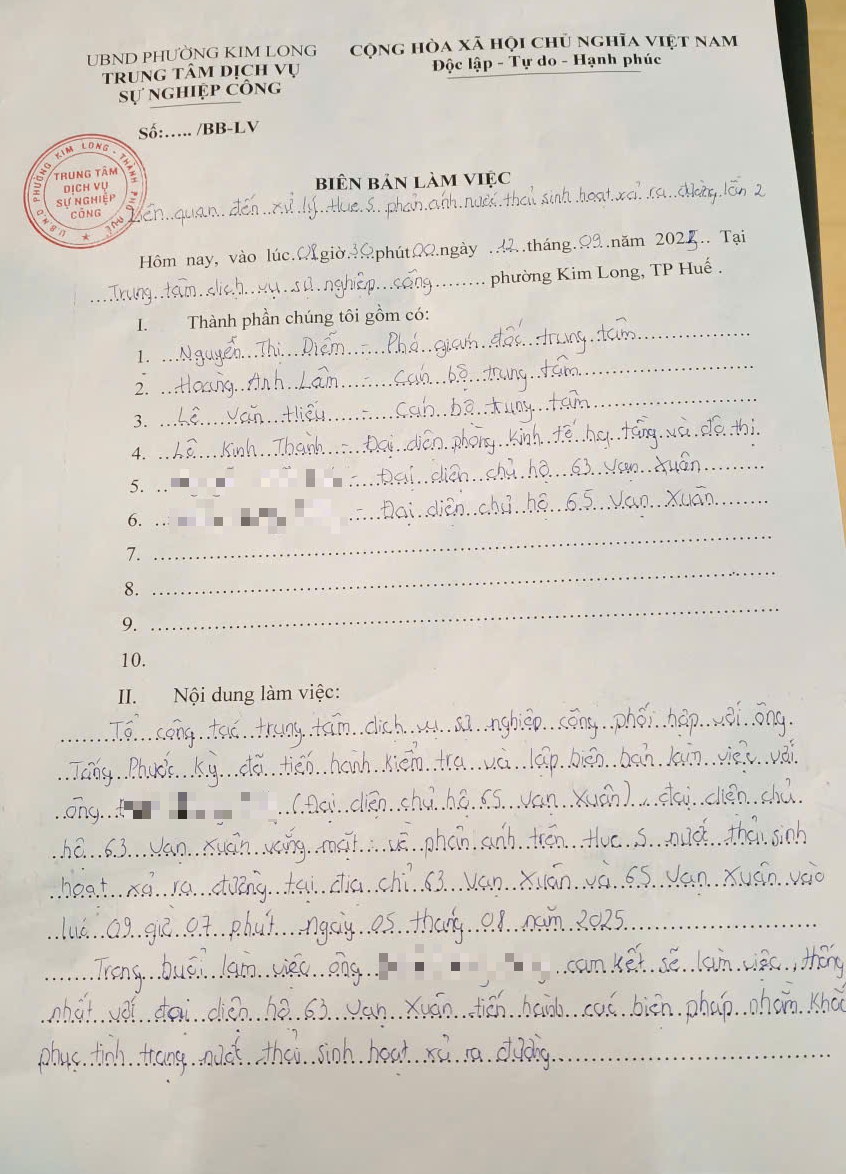 UBND PHƯỜNG KIM LONG
TRUNG TÂM DỊCH VỤ
SỰ NGHIỆP CÔNG
CỘNG HÒA XÃ HỘI CHỦ NGHĨA VIỆT NAM
Độc lập - Tự do - Hạnh phúc
Số:..... /BB-LV
U.B.N.D PHƯỜNG KIM LONG - THÀNH PHỐ HUẾ
TRUNG TÂM
DỊCH VỤ
SỰ NGHIỆP
CÔNG
BIÊN BẢN LÀM VIỆC
Liên quan đến xử lý Hue S phản ánh nước thải sinh hoạt xả ra đường lần 2
Hôm nay, vào lúc 08 giờ 30 phút 00 ngày 12 tháng 09 năm 2025. Tại
Trung tâm dịch vụ sự nghiệp công phường Kim Long, TP Huế .
I. Thành phần chúng tôi gồm có:
1. Nguyễn Thị Diễm - Phó giám đốc trung tâm
2. Hoàng Anh Lâm - Cán bộ trung tâm
3. Lê Văn Hiếu - Cán bộ trung tâm
4. Lê Kinh Thành - Đại diện phòng kinh tế hạ tầng và đô thị
5. - Đại diện chủ hộ 63 Vạn Xuân
6. - Đại diện chủ hộ 65 Vạn Xuân
7.
8.
9.
10.
II. Nội dung làm việc:
Tổ công tác trung tâm dịch vụ sự nghiệp công phối hợp với ông
Tống Phước Kỳ đã tiến hành kiểm tra và lập biên bản làm việc với
ông (Đại diện chủ hộ 65 Vạn Xuân), đại diện chủ
hộ 63 Vạn Xuân vắng mặt về phản ánh trên Hue S nước thải sinh
hoạt xả ra đường tại địa chỉ 63 Vạn Xuân và 65 Vạn Xuân vào
lúc 09 giờ 07 phút ngày 05 tháng 08 năm 2025
Trong buổi làm việc ông cam kết sẽ làm việc, thống
nhất với đại diện hộ 63 Vạn Xuân tiến hành các biện pháp nhằm khắc
phục tình trạng nước thải sinh hoạt xả ra đường